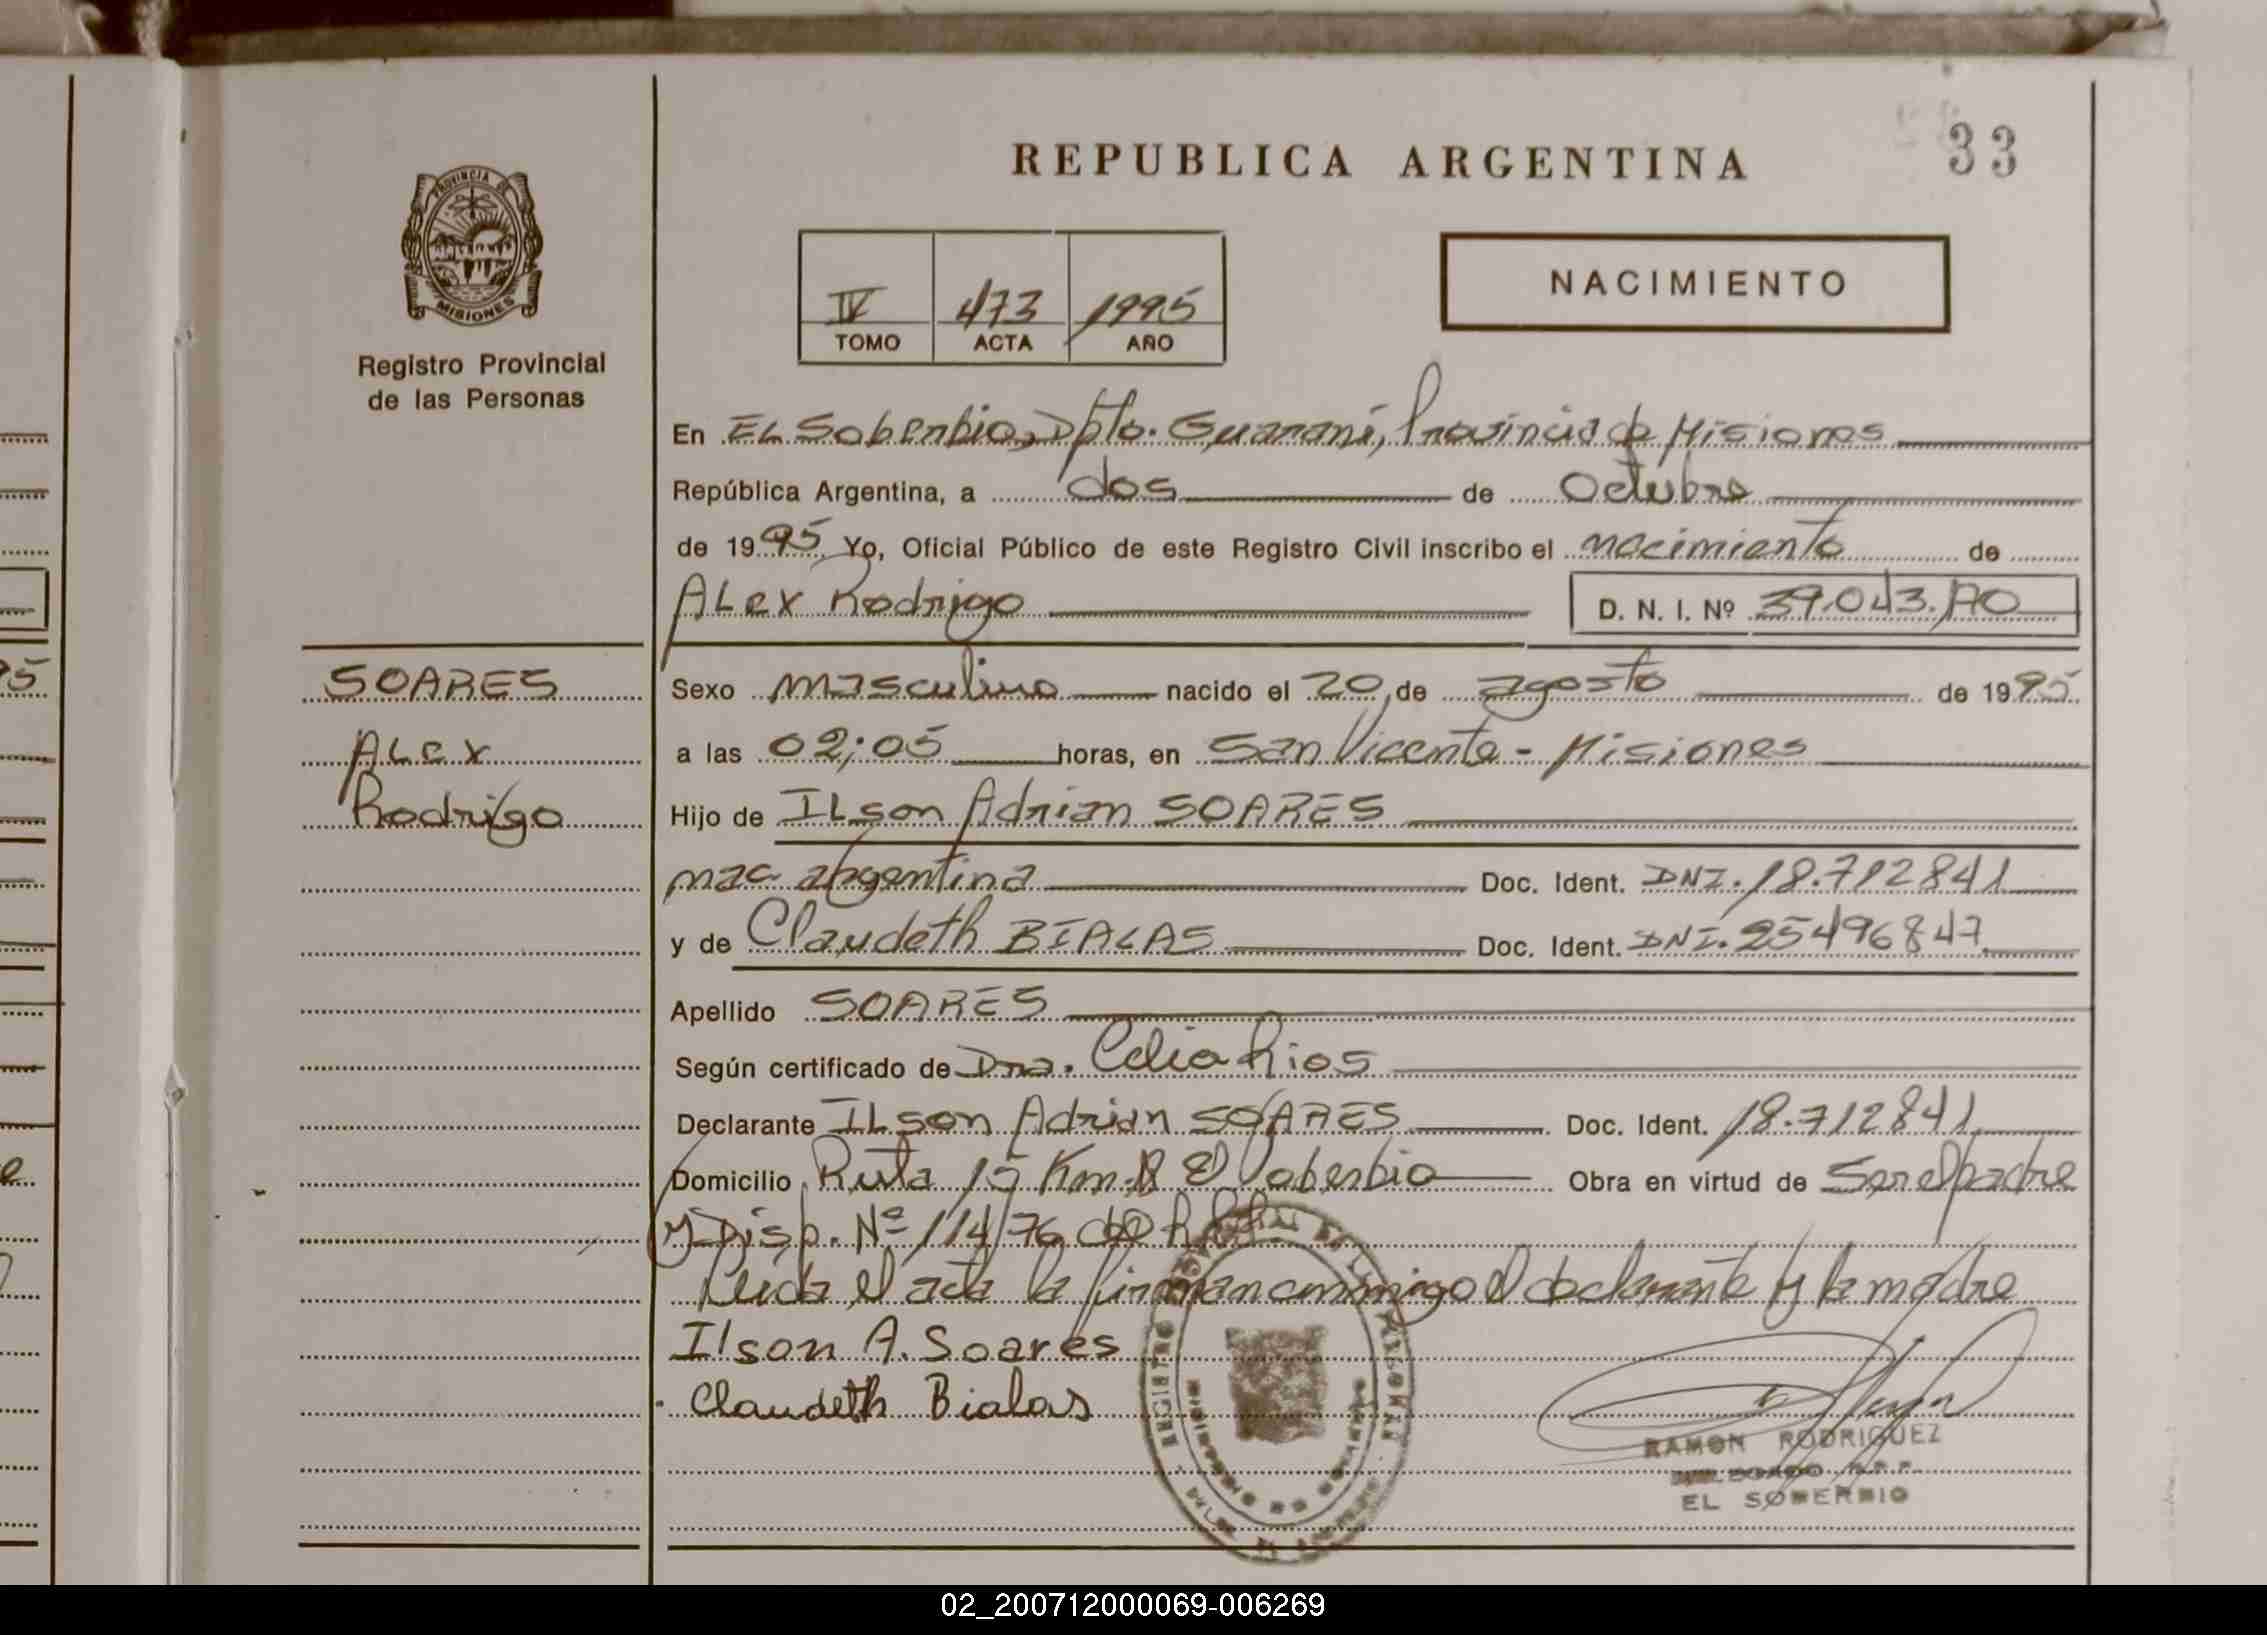 33
REPUBLICA ARGENTINA
PROVINCIA DE
MISIONES
Registro Provincial
de las Personas
IV 473 1995
TOMO ACTA AÑO
NACIMIENTO
En EL Soberbio, Dpto. Guaraní, Provincia de Misiones
República Argentina, a dos de Octubre
de 1995 Yo, Oficial Público de este Registro Civil inscribo el nacimiento de
ALex Rodrigo D. N. I. Nº 39.043.170
SOARES
ALex
Rodrigo
Sexo masculino nacido el 20 de agosto de 1995
a las 02;05 horas, en San Vicente - Misiones
Hijo de ILson Adrian SOARES
nac argentina Doc. Ident. DNI. 18.712841
y de Claudeth BIALAS Doc. Ident. DNI. 25496847
Apellido SOARES
Según certificado de Dra. Celia Rios
Declarante ILson Adrian SOARES Doc. Ident. 18.712841
Domicilio Ruta 15 Km. 8 El Soberbio Obra en virtud de Ser el padre
y Disp. Nº 114/76 de
Leida el acta la firman conmigo el declarante y la madre
Ilson A. Soares
Claudeth Bialas
RAMON RODRIGUEZ
EL SOBERBIO
02_200712000069-006269